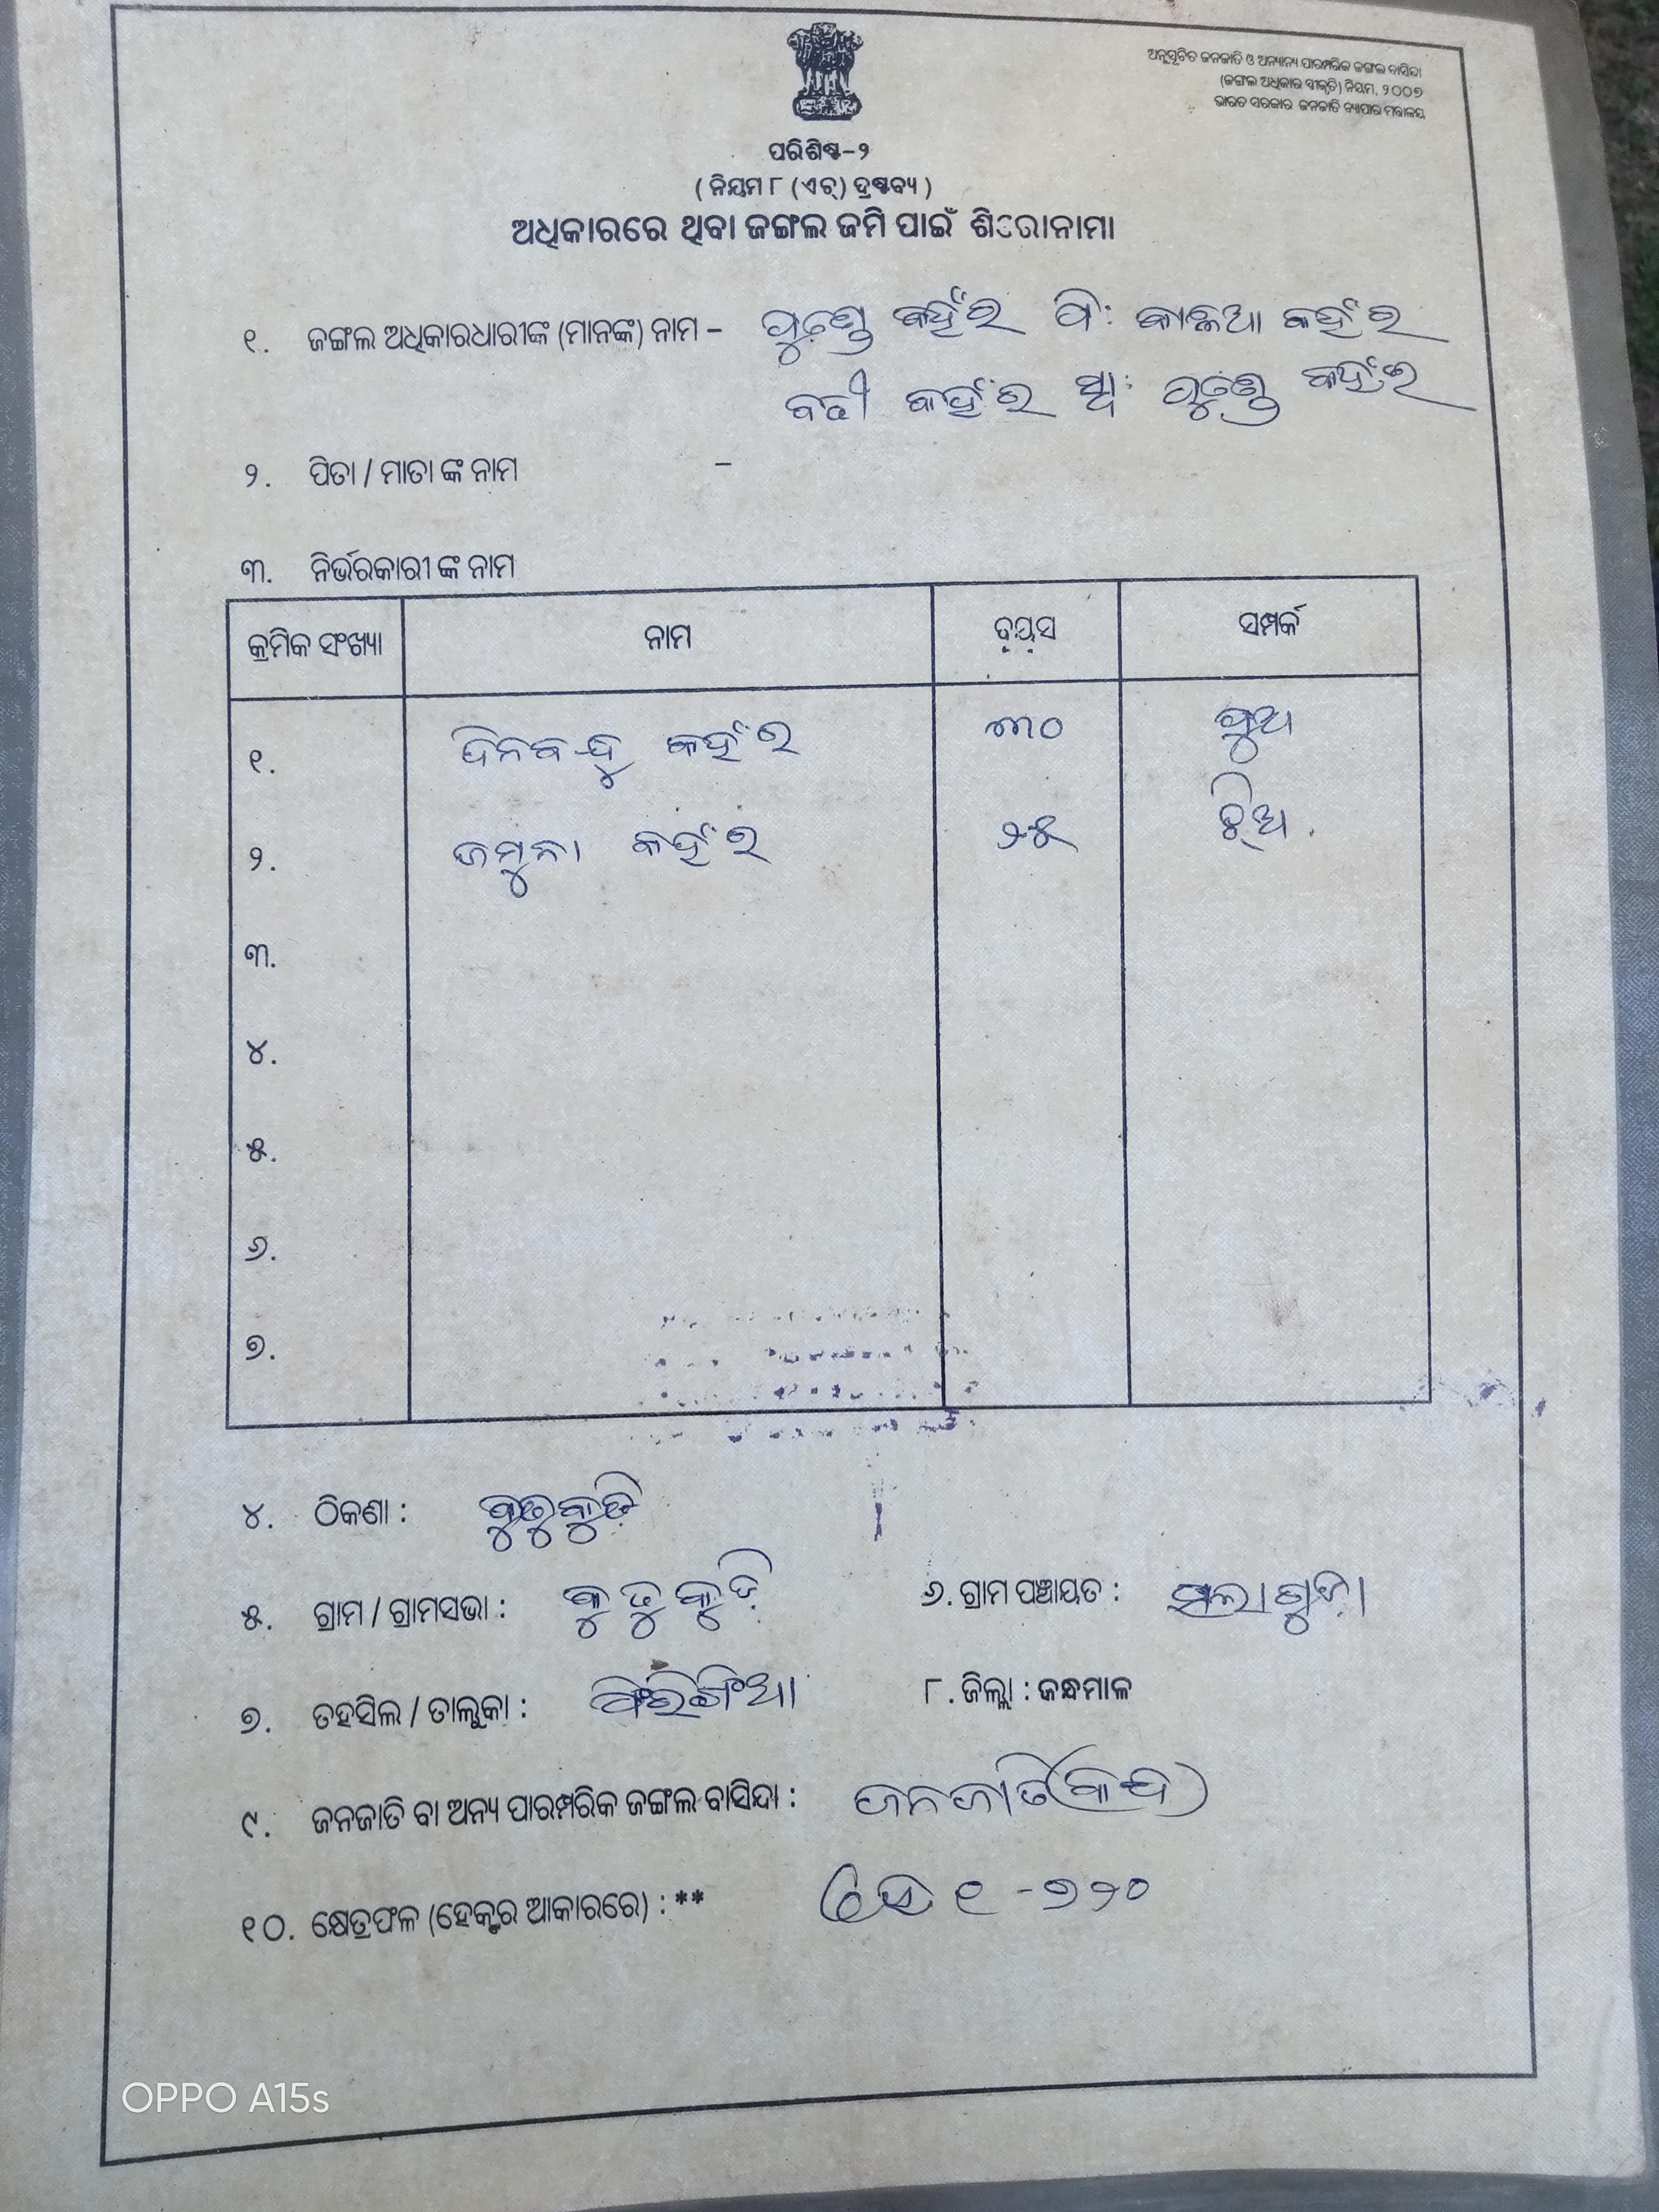 ଅନୁସୂଚିତ ଜନଜାତି ଓ ଅନ୍ୟାନ୍ୟ ପାରମ୍ପରିକ ଜଙ୍ଗଲ ବାସିନ୍ଦା
(ଜଙ୍ଗଲ ଅଧିକାର ସ୍ୱୀକୃତି) ନିୟମ, ୨୦୦୭
ଭାରତ ସରକାର ଜନଜାତି ବ୍ୟାପାର ମନ୍ତ୍ରାଳୟ
ପରିଶିଷ୍ଟ-୨
( ନିୟମ ୮ (ଏଚ୍) ଦ୍ରଷ୍ଟବ୍ୟ )
ଅଧିକାରରେ ଥିବା ଜଙ୍ଗଲ ଜମି ପାଇଁ
୧. ଜଙ୍ଗଲ ଅଧିକାରଧାରୀଙ୍କ (ମାନଙ୍କ) ନାମ - କହଁର ପି: କାଳିଆ କହଁର
କହଁର ସ୍ୱା: କହଁର
୨. ପିତା / ମାତା ଙ୍କ ନାମ -
୩. ନିର୍ଭରକାରୀ ଙ୍କ ନାମ
କ୍ରମିକ ସଂଖ୍ୟା ନାମ ବୟସ ସମ୍ପର୍କ
୧. ଦିନବନ୍ଧୁ କହଁର ୩୦ ପୁଅ
୨. ଜମୁନା କହଁର ୨୫ ଝିଅ
୩.
୪.
୫.
୬.
୭.
୪. ଠିକଣା : କୁଡୁକୁଡ଼ି
୫. ଗ୍ରାମ / ଗ୍ରାମସଭା : କୁଡୁକୁଡ଼ି ୬. ଗ୍ରାମ ପଞ୍ଚାୟତ :
୭. ତହସିଲ / ତାଲୁକା : ଫିରିଙ୍ଗିଆ ୮. ଜିଲ୍ଲା : କନ୍ଧମାଳ
୯. ଜନଜାତି ବା ଅନ୍ୟ ପାରମ୍ପରିକ ଜଙ୍ଗଲ ବାସିନ୍ଦା : ଜନଜାତି (କନ୍ଧ)
୧୦. କ୍ଷେତ୍ରଫଳ (ହେକ୍ଟର ଆକାରରେ) : ** ହେ ୧ - ୭୨୦
OPPO A15s